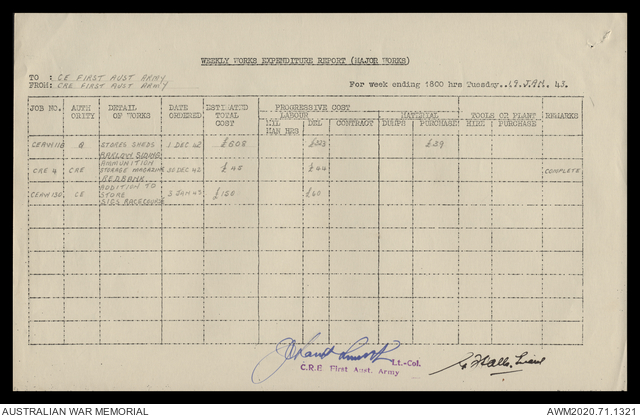 WEEKLY WORKS EXPENDITURE REPORT (MAJOR WORKS)
TO : C.E FIRST AUST ARMY
FROM: CRE FIRST AUST ARMY
For week ending 1800 hrs Tuesday..19.JAN. 43.
JOB NO. AUTHORITY DETAIL OF WORKS DATE ORDERED ESTIMATED TOTAL COST PROGRESSIVE COST REMARKS
LABOUR MATERIAL TOOLS OR PLANT
MIL MAN HRS DEL CONTRACT DUMPS PURCHASE HIRE PURCHASE
CEAW 116 Q STORES SHEDS 1 DEC 42 £608 £39
SIDING
CRE 4 CRE AMMUNITION STORAGE MAGAZINE REDBANK 30 DEC 42 £45 £44 COMPLETE
CEAW 130 CE ADDITION TO STORE SIGS RACECOURSE 3 JAN 43 £150 £60
Lt.-Col.
C.R.E First Aust. Army
AUSTRALIAN WAR MEMORIAL
AWM2020.71.1321